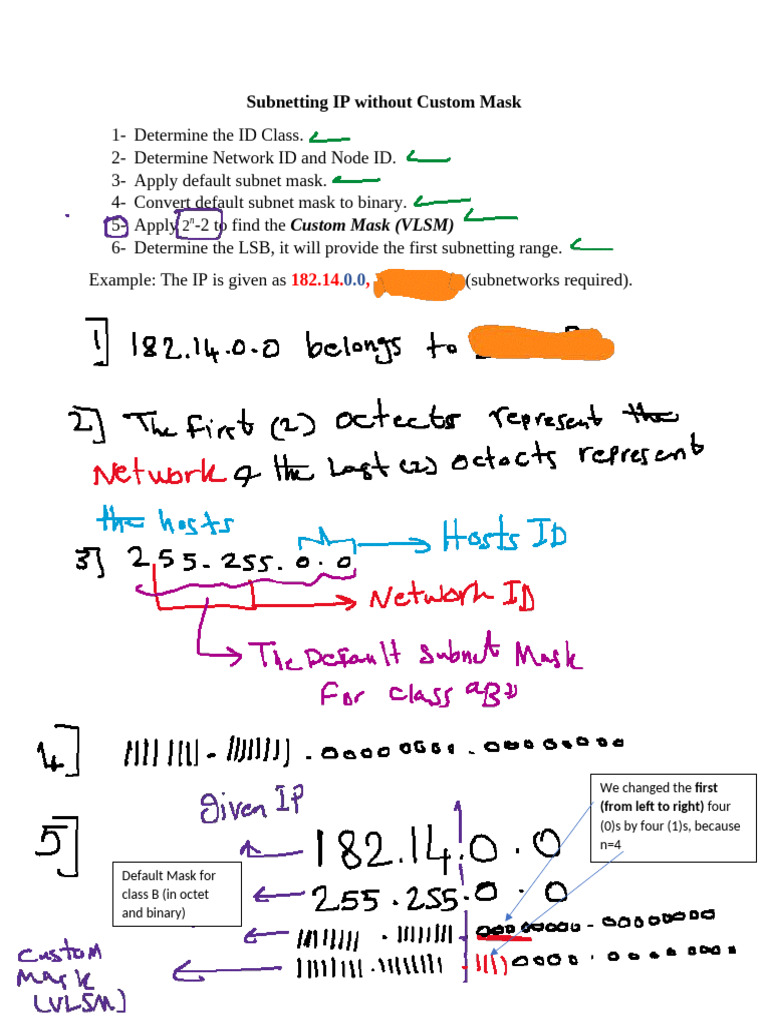 Subnetting IP without Custom Mask
1- Determine the ID Class.
2- Determine Network ID and Node ID.
3- Apply default subnet mask.
4- Convert default subnet mask to binary.
5- Apply 2ⁿ-2 to find the Custom Mask (VLSM)
6- Determine the LSB, it will provide the first subnetting range.
Example: The IP is given as 182.14.0.0, (subnetworks required).
1] 182.14.0.0 belongs to
2] The First (2) octects represent the
Network & the Last (2) octocts represent
the hosts
Hosts ID
3] 255.255.0.0
Network ID
The Default Subnet Mask
For class "B"
4] 11111111.11111111.00000000.00000000
We changed the first
(from left to right) four
(0)s by four (1)s, because
n=4
given IP
5] 182.14.0.0
Default Mask for
class B (in octet
and binary)
255.255.0.0
11111111.11111111.00000000.00000000
11111111.11111111.11110000.00000000
Custom
Mask
(VLSM]